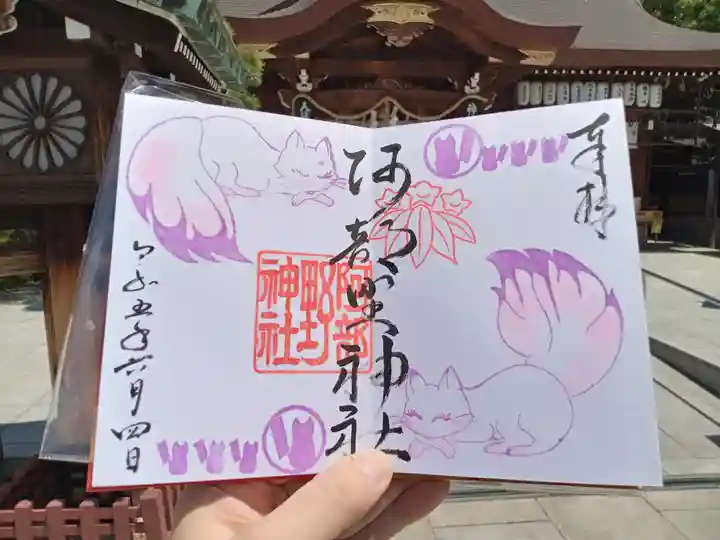 奉拝
阿部野神社
阿部野神社
令和五年六月四日